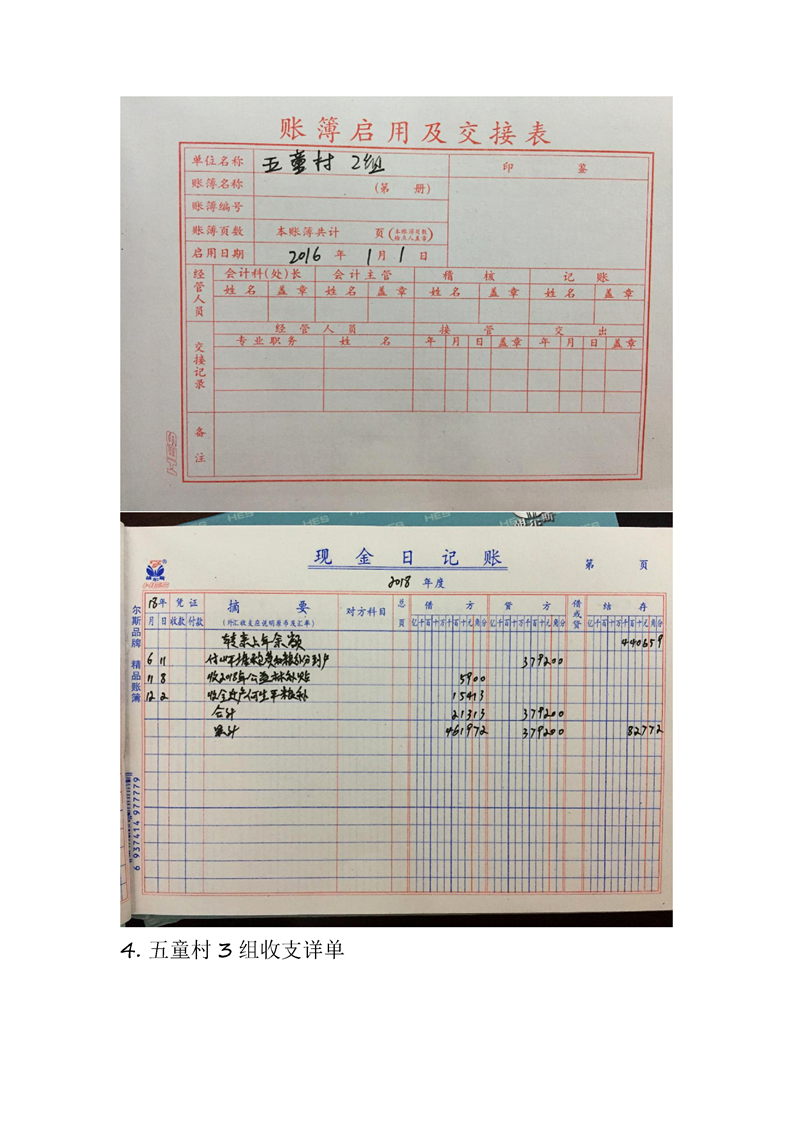 账簿启用及交接表
单位名称 五童村 2组 印 鉴
账簿名称 (第 册)
账簿编号
账簿页数 本账簿共计 页(本账簿页数检点人盖章)
启用日期 2016 年 1 月 1 日
经管人员 会计科(处)长 会计主管 稽 核 记 账
姓 名 盖 章 姓 名 盖 章 姓 名 盖 章 姓 名 盖 章
交接记录 经 管 人 员 接 管 交 出
专业职务 姓 名 年 月 日 盖章 年 月 日 盖章
备注
HES HES HES
现金日记账 第 页
2018 年度
18年 凭证 摘 要 对方科目 总页 借 方 贷 方 借或贷 结 存
月 日 收款 付款 (外汇收支应说明原币及汇率) 亿千百十万千百十元角分 亿千百十万千百十元角分 亿千百十万千百十元角分
转来上年余额 440659
6 11 379200
11 8 收2018年公益林补贴 5900
12 2 15413
合计 21313 379200
累计 461972 379200 82772
尔斯品牌 精品账簿
6 937414 977779
4. 五童村 3 组收支详单